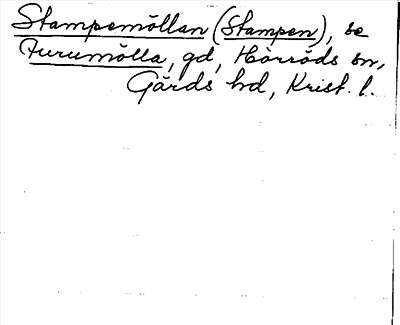 Stampemöllan (Stampen), se
Furumölla, gd, Hörröds sn,
Gärds hd, Krist. l.